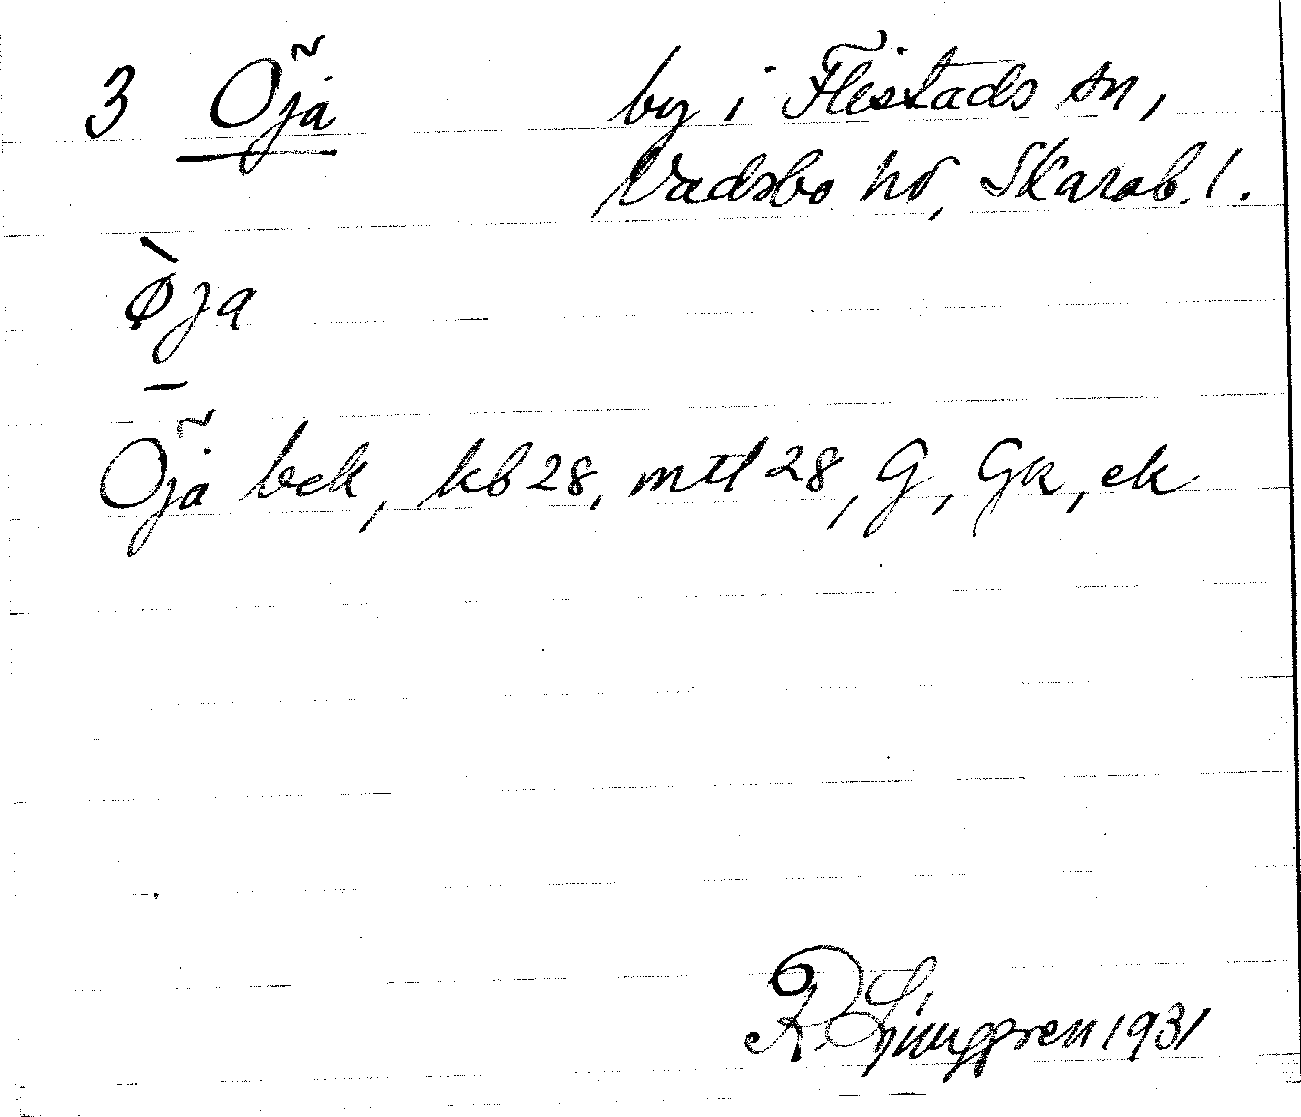 3 Öja by i Flistads sn,
Vadsbo hd, Skarab. l.
ø̀ja
Öja bek, kb 28, mtl 28, G, Gk, ek
R Ljunggren 1931